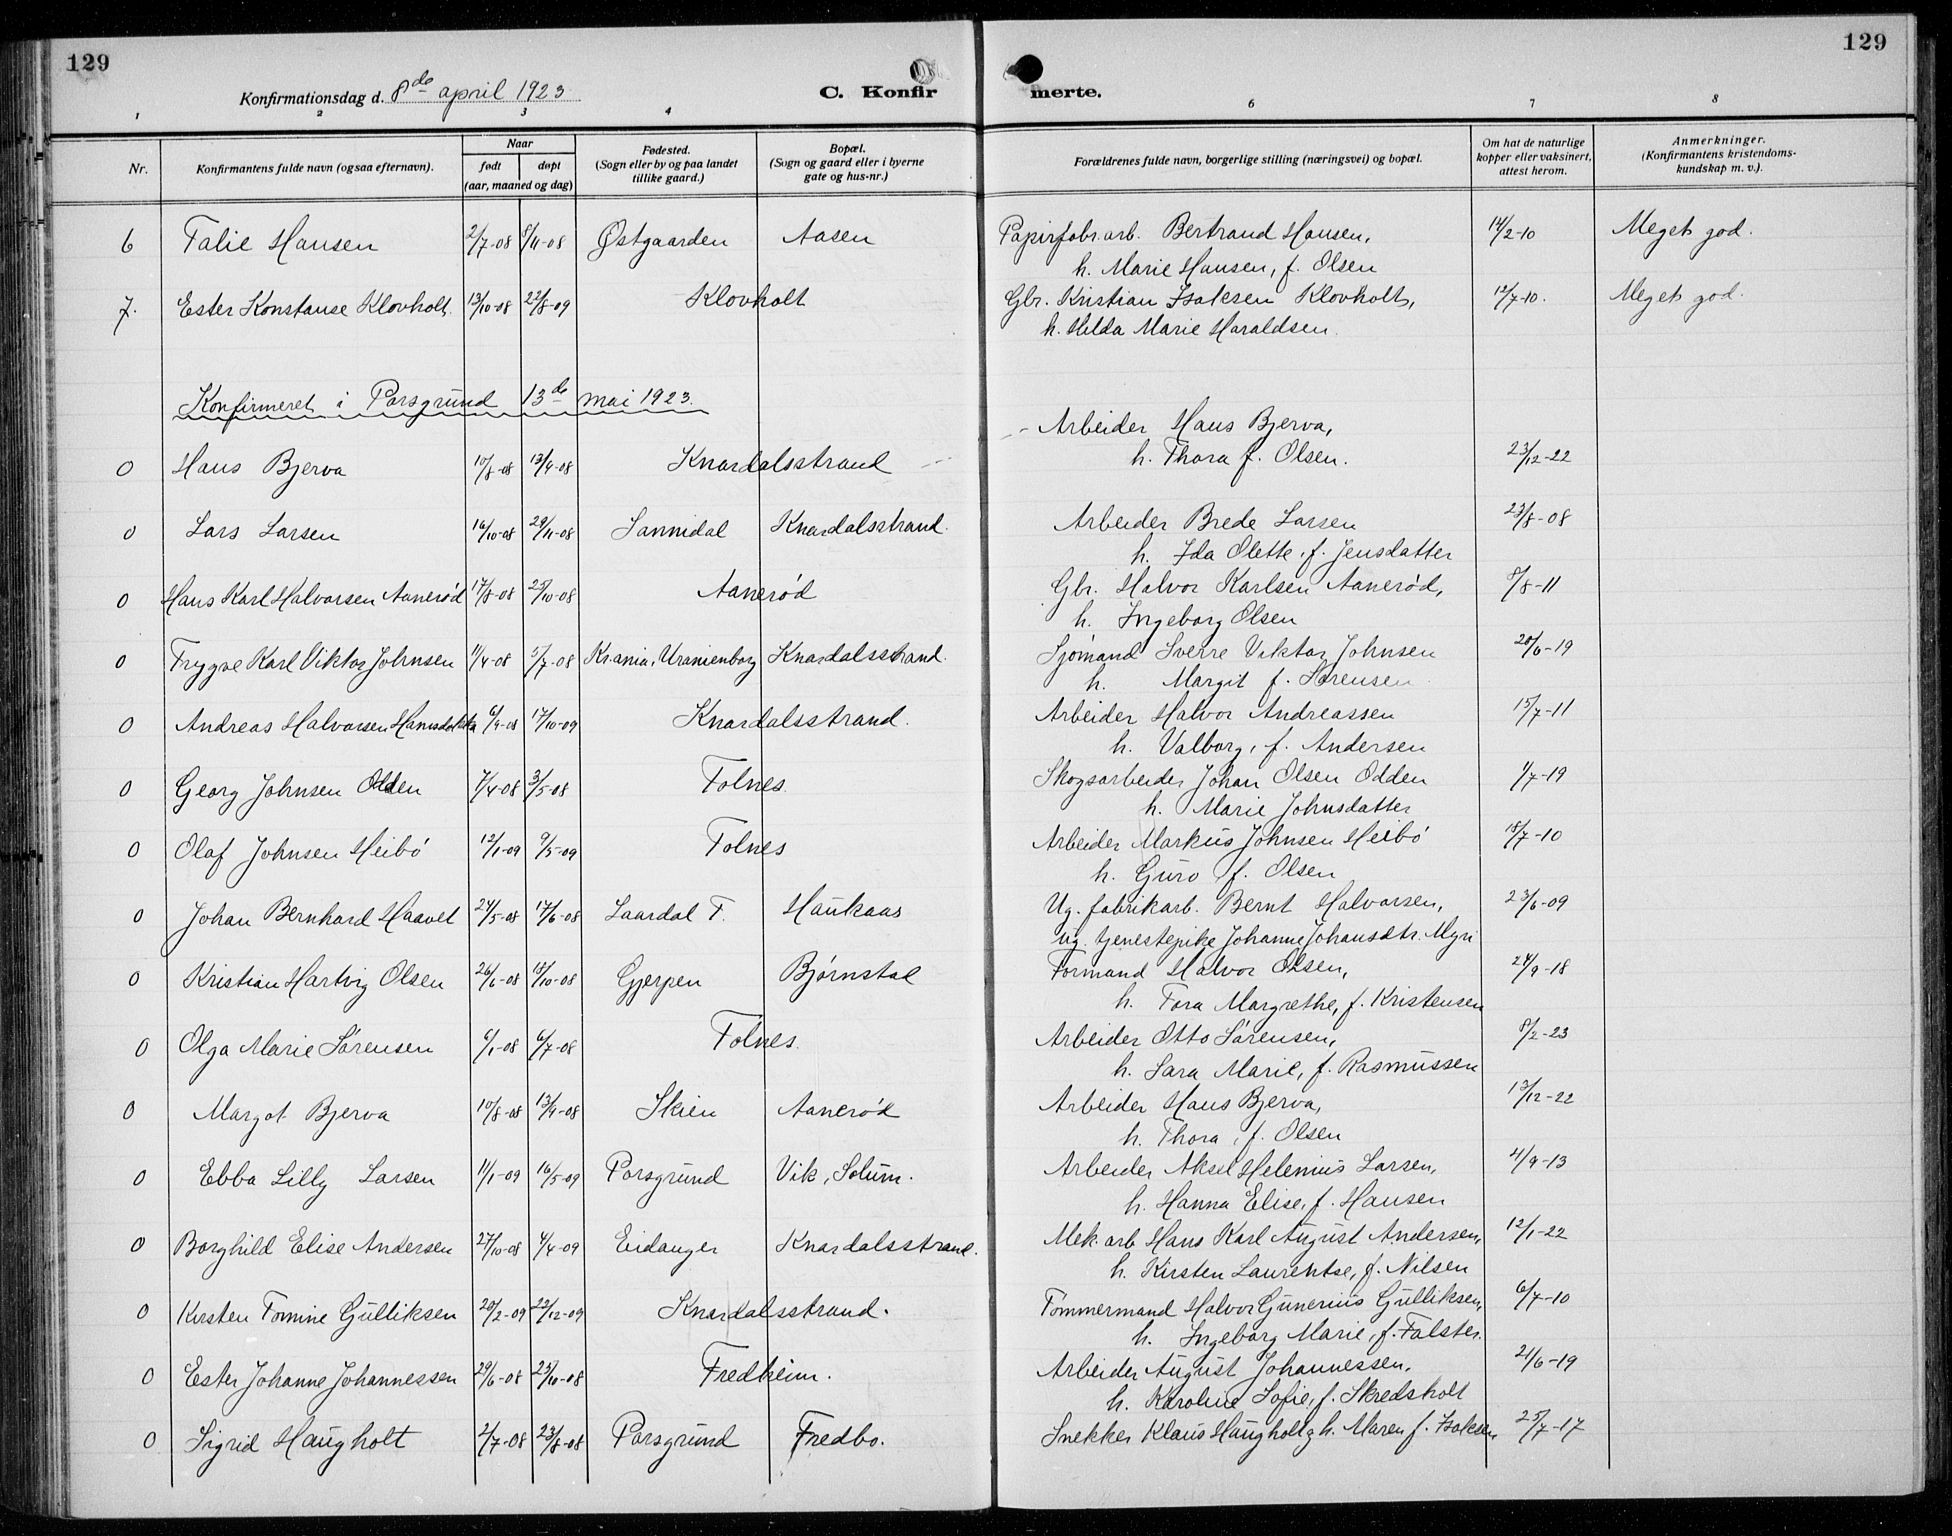 129
129
Konfirmationsdag d. 8de april 1923
C. Konfir merte.
1 2 3 4 6 7 8
Nr. Konfirmantens fulde navn (ogsaa efternavn). Naar født døpt (aar, maaned og dag) Fødested. (Sogn eller by og paa landet tillike gaard.) Bopæl. (Sogn og gaard eller i byerne gate og hus-nr.) Forældrenes fulde navn, borgerlige stilling (næringsvei) og bopæl. Om hat de naturlige kopper eller vaksinert, attest herom. Anmerkninger. (Konfirmantens kristendoms-kundskap m. v.).
6 Talie Hansen 2/7-08 8/11-08 Østgaarden Aasen Papirfabr.arb. Bertrand Hansen, 14/2-10 Meget god.
h. Marie Hansen, f. Olsen
7. Ester Konstanse Klovholt 13/10-08 22/8-09 Klovholt Gbr. Kristian Isaksen Klovholt, 12/7-10. Meget god.
h. Hilda Marie Haraldsen.
Konfirmeret i Porsgrund 13de mai 1923.
Arbeider Hans Bjerva,
0 Hans Bjerva 10/8-08 13/9-08 Knardalsstrand h. Thora f. Olsen. 23/12-22
0 Lars Larsen 16/10-08 29/11-08 Sannidal Knardalsstrand. Arbeider Brede Larsen 23/8-08
h. Ida Olette, f. Jensdatter
0 Hans Karl Halvorsen Aanerød 17/8-08 25/10-08 Aanerød Gbr. Halvor Karlsen Aanerød, 8/8-11
h. Ingeborg Olsen
0 Trygve Karl Viktor Johnsen 11/4-08 5/7-08 Kr.ania, Uranienborg Knardalsstrand. Sjømand Sverre Viktor Johnsen 20/6-19
h. Margit f. Sørensen
0 Andreas Halvorsen 6/9-08 17/10-09 Knardalsstrand. Arbeider Halvor Andreassen 15/7-11
h. Valborg, f. Andersen
0 Georg Johnsen Odden 7/4-08 3/5-08 Tolnes. Skogsarbeider Johan Olsen Odden 1/7-19
h. Marie Johnsdatter
0 Olaf Johnsen Heibø 12/1-09 9/5-09 Tolnes Arbeider Markus Johnsen Heibø 18/7-10
h. Guro f. Olsen
0 Johan Bernhard Haavet 24/5-08 17/6-08 Laardal T. Haukaas Ug. fabrikarb. Bernt Halvorsen, 23/6-09
ug. tjenestepike Johanne Johansdtr. Myri
0 Kristian Hartvig Olsen 26/6-08 18/10-08 Gjerpen Bjørnstad Formand Halvor Olsen, 24/9-18
h. Tora Margrethe, f. Kristensen
0 Olga Marie Sørensen 6/1-08 6/7-08 Tolnes. Arbeider Otto Sørensen, 8/2-23
h. Sara Marie, f. Rasmussen
0 Margot Bjerva 10/8-08 13/9-08 Skien Aanerød Arbeider Hans Bjerva, 13/12-22
h. Thora, f. Olsen
0 Ebba Lilly Larsen 11/1-09 16/5-09 Porsgrund Vik, Solum. Arbeider Aksel Helenius Larsen, 4/9-13
h. Hanna Elise, f. Hansen
0 Borghild Elise Andersen 27/10-08 4/4-09 Eidanger Knardalsstrand. Mek. arb Hans Karl August Andersen, 12/1-22
h. Kirsten Laurentse, f. Nilsen
0 Kirsten Tomine Gulliksen 20/2-09 22/12-09 Knardalsstrand. Tømmermand Halvor Gunerius Gulliksen, 6/7-10
h. Ingeborg Marie, f. Falster.
0 Ester Johanne Johannessen 29/6-08 23/10-08 Fredheim. Arbeider August Johannessen, 21/6-19
h. Karoline Sofie, f. Skredsholt
0 Sigrid Haugholt 2/7-08 23/8-08 Porsgrund Fredbo. Snekker Klaus Haugholt, h. Maren f. Isaksen 25/7-17